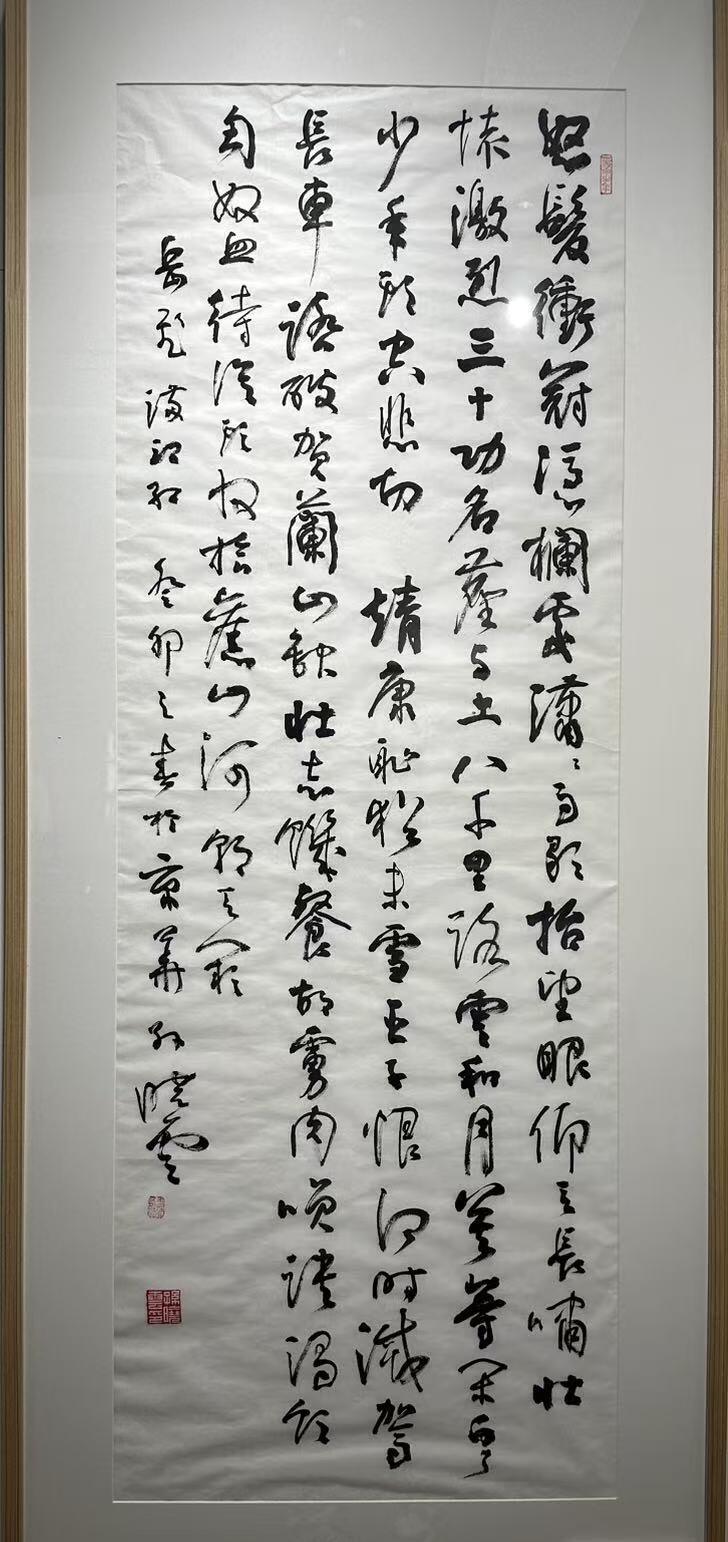 怒髮衝冠憑欄處瀟〻雨歇抬望眼仰天長嘯壯
懷激烈三十功名塵与土八千里路雲和月莫等閑白了
少年頭空悲切 靖康恥猶未雪臣子恨何時滅駕
長車踏破賀蘭山缺壯志饑餐胡虜肉笑談渴飲
匈奴血待從頭收拾舊山河朝天闕
岳飛滿江紅 癸卯之春於京華 孫曉雲
孫曉雲印